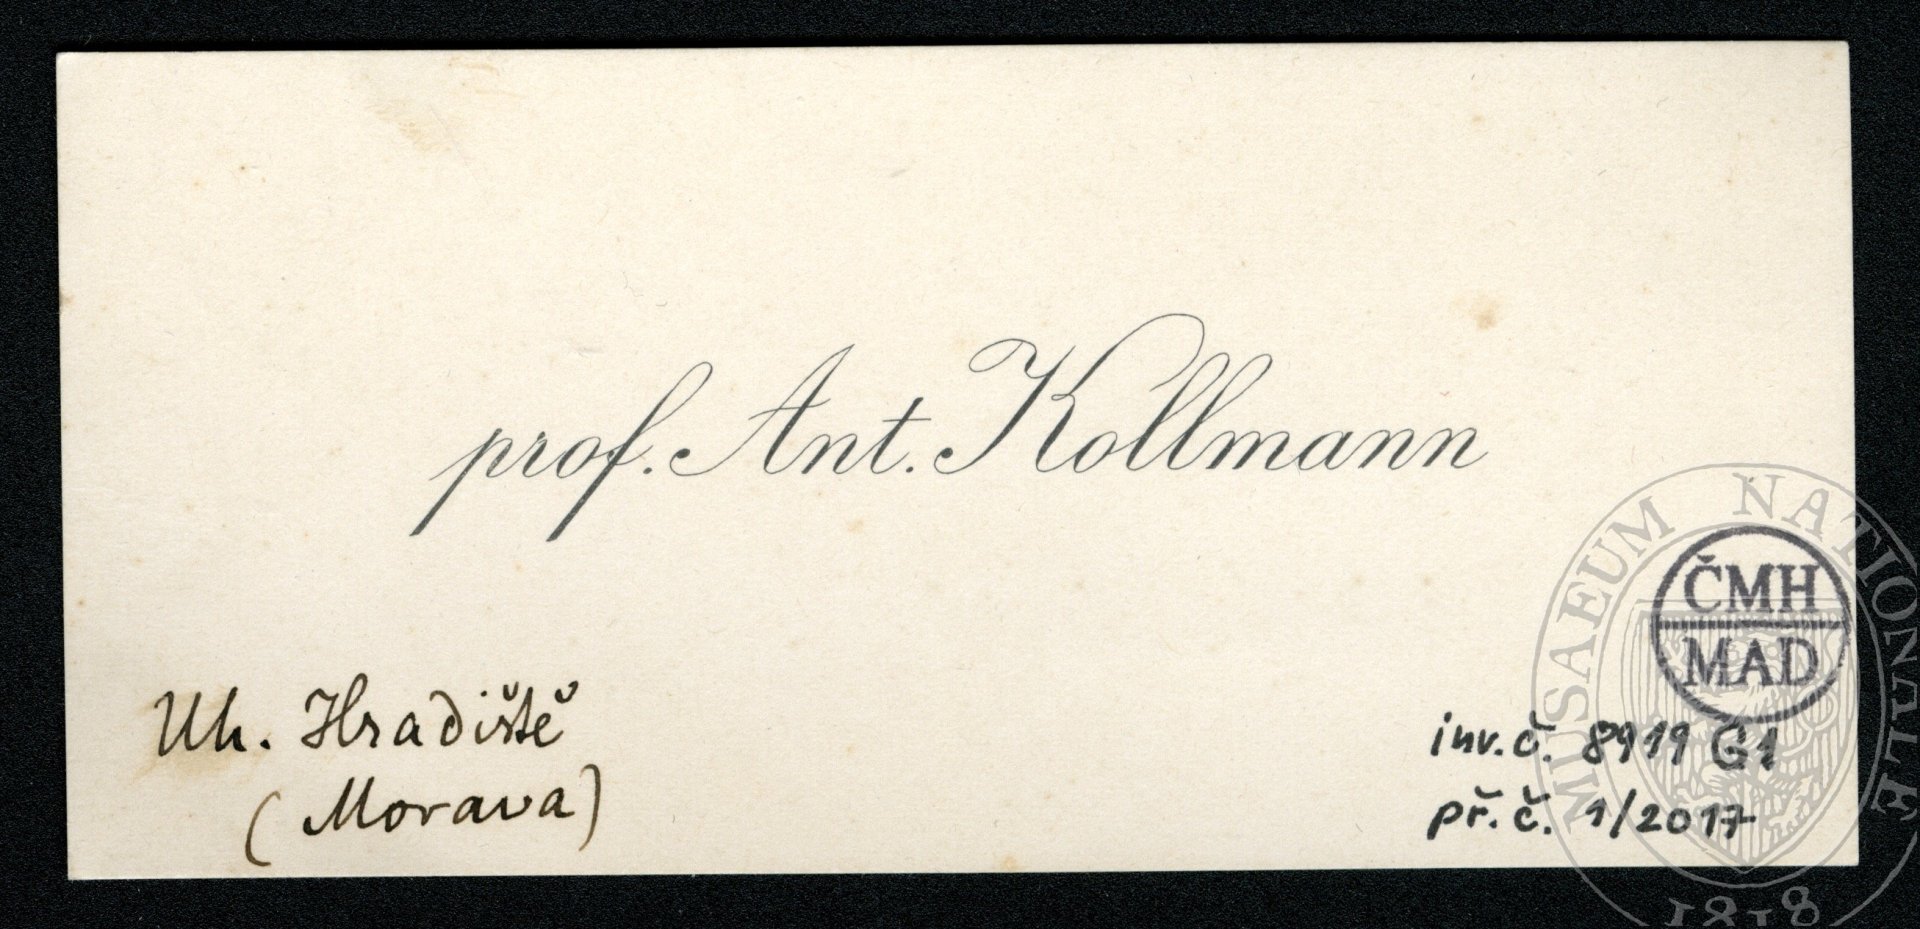 prof. Ant. Kollmann
Uh. Hradiště
(Morava)
ČMH
MAD
inv. č. 8919 G1
př. č. 1/2017
MUSAEUM NATIONALE
1818